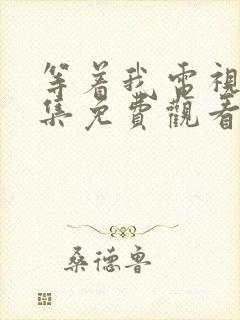 等着我電視
集免費觀看
桑德魯